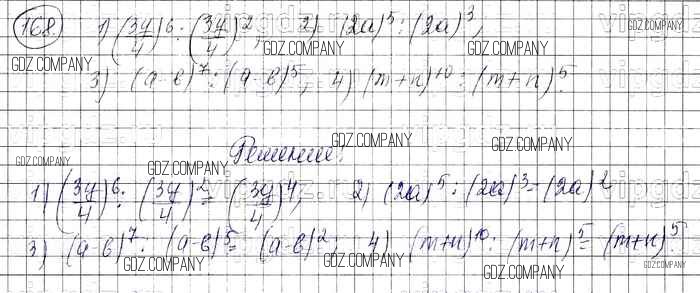 168 1) (3y/4)^6 : (3y/4)^2, 2) (2a)^5 : (2a)^3,
3) (a-в)^7 : (a-в)^5, 4) (m+n)^10 : (m+n)^5.
Решение.
1) (3y/4)^6 : (3y/4)^2 = (3y/4)^4, 2) (2a)^5 : (2a)^3 = (2a)^2
3) (a-в)^7 : (a-в)^5 = (a-в)^2, 4) (m+n)^10 : (m+n)^5 = (m+n)^5
GDZ.COMPANY
GDZ.COMPANY
GDZ.COMPANY
GDZ.COMPANY
GDZ.COMPANY
GDZ.COMPANY
GDZ.COMPANY
GDZ.COMPANY
GDZ.COMPANY
GDZ.COMPANY
GDZ.COMPANY
GDZ.COMPANY